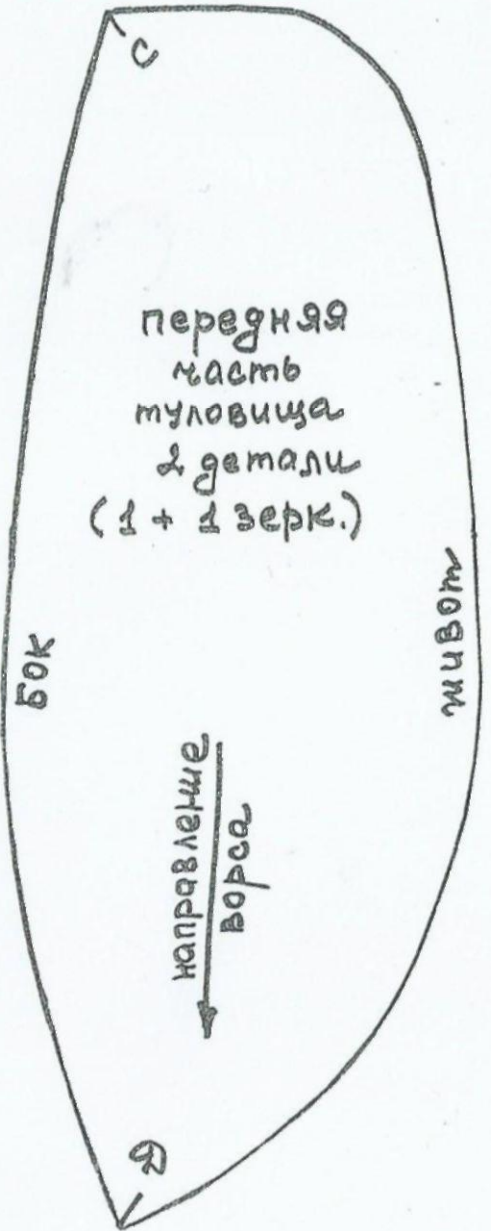 С
передняя
часть
туловища
2 детали
(1 + 1 зерк.)
Бок
живот
направление
ворса
Д